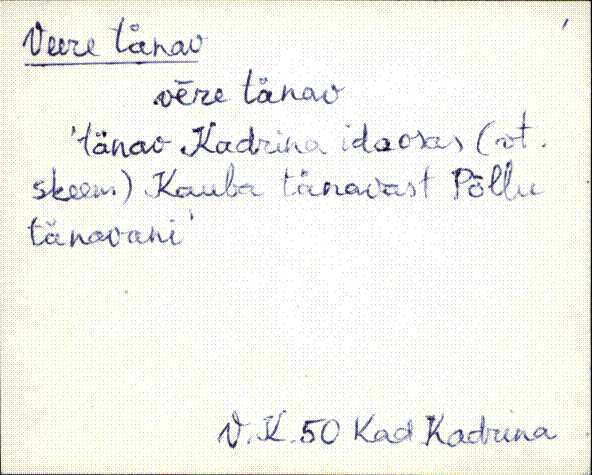 Veere tänav
vēre tänav
'tänav Kadrina idaosas (vt.
skeem) Kauba tänavast Põllu
tänavani'
V.K. 50 Kad Kadrina